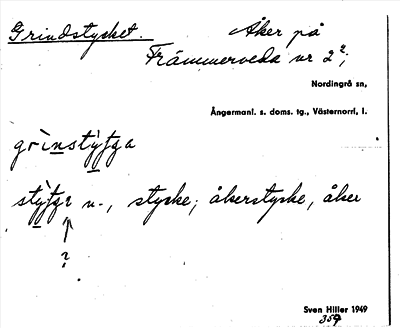 Grindstycket. Åker på
Främmerveda nr 2²;
Nordingrå sn,
Ångermanl. s. doms. tg., Västernorrl, l.
stycke; åkerstycke, åker
?
Sven Hiller 1949
359